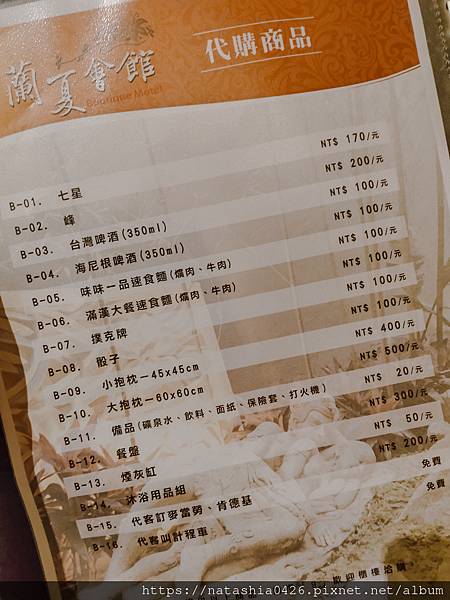 蘭夏會館
Boutique Motel
代購商品
B-01. 七星 NT$ 170/元
B-02. 峰 NT$ 200/元
B-03. 台灣啤酒(350ml) NT$ 100/元
B-04. 海尼根啤酒(350ml) NT$ 100/元
B-05. 味味一品速食麵(爌肉、牛肉) NT$ 100/元
B-06. 滿漢大餐速食麵(爌肉、牛肉) NT$ 100/元
B-07. 撲克牌 NT$ 100/元
B-08. 骰子 NT$ 100/元
B-09. 小抱枕－45x45cm NT$ 400/元
B-10. 大抱枕－60x60cm NT$ 500/元
B-11. 備品(礦泉水、飲料、面紙、保險套、打火機) NT$ 20/元
B-12. 餐盤 NT$ 300/元
B-13. 煙灰缸 NT$ 50/元
B-14. 沐浴用品組 NT$ 200/元
B-15. 代客訂麥當勞、肯德基 免費
B-16. 代客叫計程車 免費
歡迎櫃檯洽購
https://natashia0426.pixnet.net/album